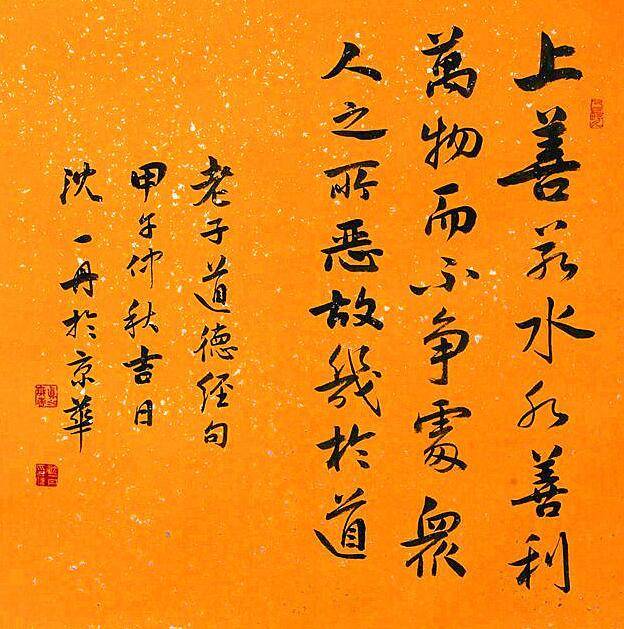 上善若水水善利
萬物而不争處衆
人之所惡故幾於道
老子道德经句
甲午仲秋吉日
沈一丹於京華